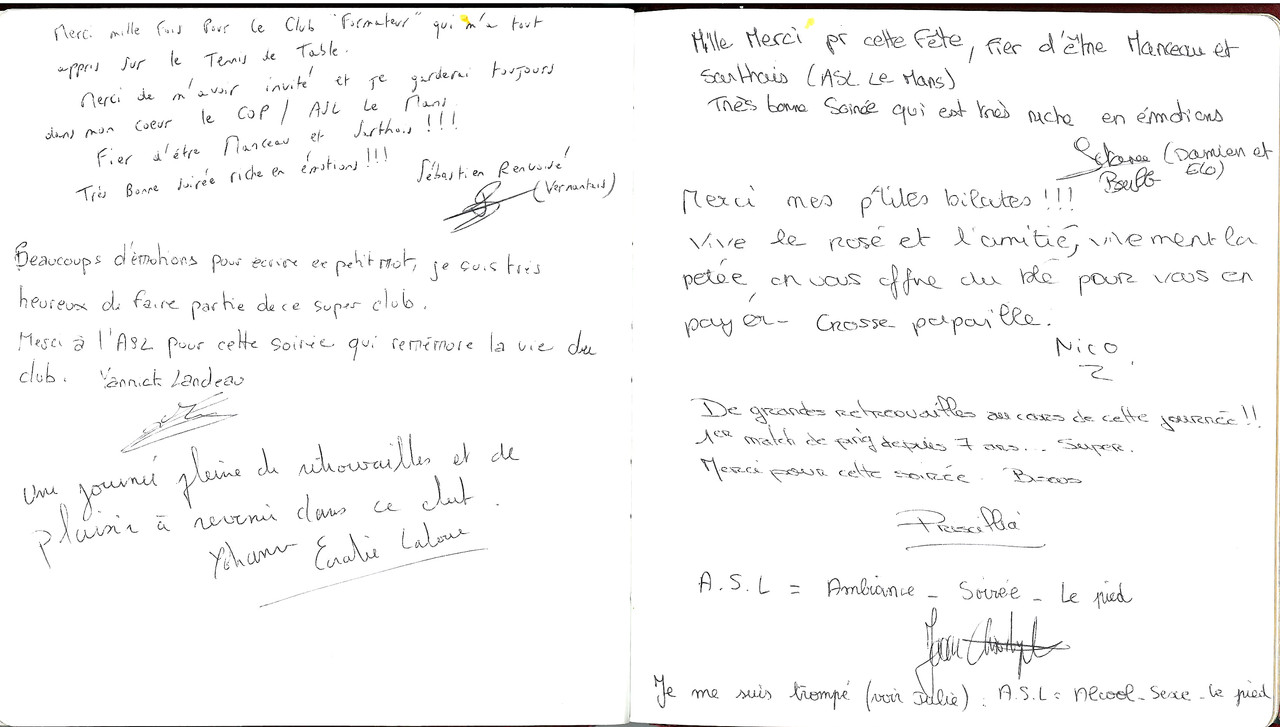 Merci mille fois pour le Club "Formateur" qui m'a tout
appris sur le Tennis de Table.
Merci de m'avoir invité et je garderai toujours
dans mon coeur le COP / ASL Le Mans
Fier d'être Manceau et Sarthois !!!
Très Bonne soirée riche en émotions !!!
Sébastien Renvoisé
(Vernantais)
Beaucoups d'émotions pour écrire ce petit mot, je suis très
heureux de faire partie de ce super club.
Merci à l'ASL pour cette soirée qui remémore la vie du
club. Yannick Landeau
Une journée pleine de retrouvailles et de
plaisir à revenir dans ce club.
Yohann Coralie
Mille Merci pr cette Fête, Fier d'être Manceau et
Sarthois (ASL Le Mans)
Très bonne Soirée qui est très riche en émotions
(Damien et
Elo)
Merci mes p'tites bilates !!!
Vive le rosé et l'amitié, vivement la
petée, on vous offre du blé pour vous en
payér- Grosse papaille.
Nico
De grandes retrouvailles au cours de cette journée !!
1er match de ping depuis 7 ans... Super.
Merci pour cette soirée. Bisous
Priscillia
A.S.L = Ambiance - Soirée - Le pied
Jean Christophe
Je me suis trompé (voir Julie) : A.S.L = Alcool - Sexe - Le pied